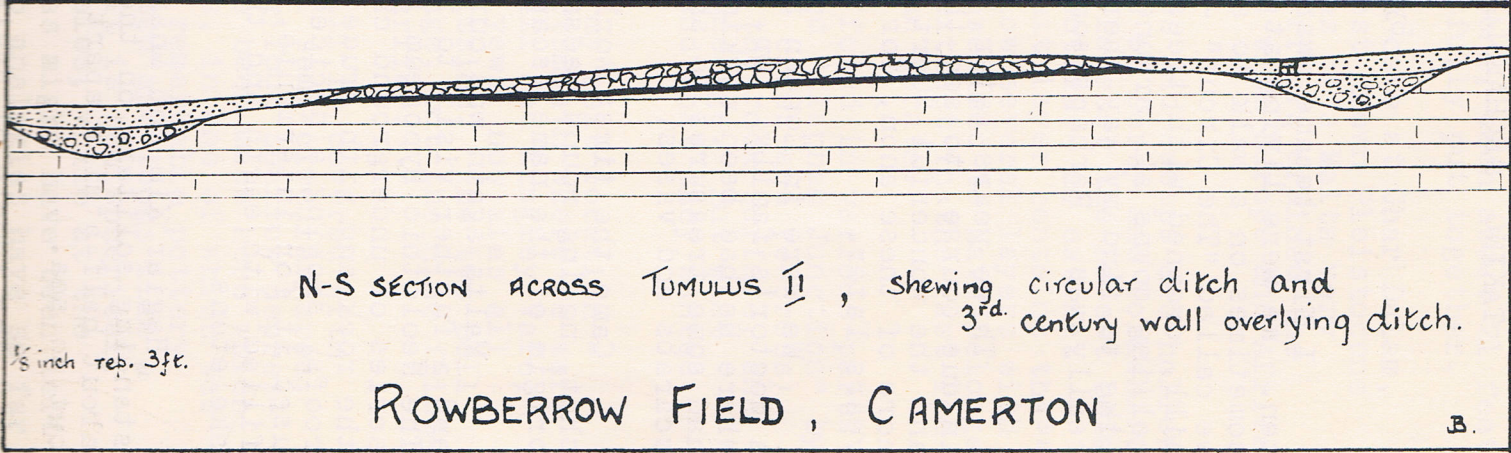 N-S SECTION ACROSS TUMULUS II, shewing circular ditch and
3rd. century wall overlying ditch.
1/8 inch rep. 3ft.
ROWBERROW FIELD, CAMERTON
B.